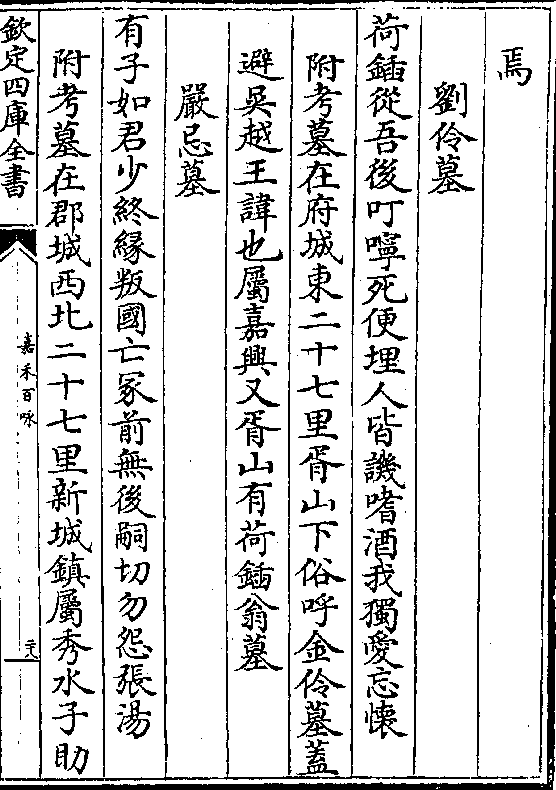 焉
劉伶墓
荷鍤從吾後叮嚀死便埋人皆譏嗜酒我獨愛忘懷
附考墓在府城東二十七里胥山下俗呼金伶墓蓋
避吳越王諱也屬嘉興又胥山有荷鍤翁墓
嚴忌墓
有子如君少終緣叛國亡冢前無後嗣切勿怨張湯
附考墓在郡城西北二十七里新城鎮屬秀水子助
欽定四庫全書
嘉禾百咏
二十八